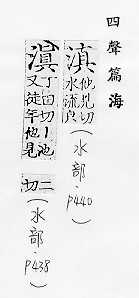 四聲篇海
滇 他見切水流皃(水部.P440)
滇 丁田切丨池又徒年他見二切(水部.P438)